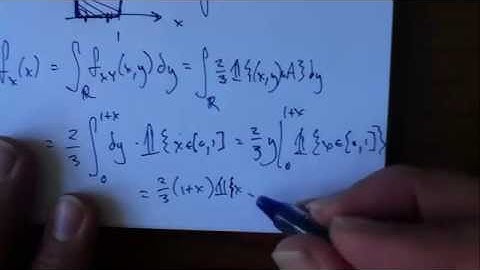 1 x
f_X(x) = ∫_ℝ f_XY(x,y)dy = ∫_ℝ 2/3 𝟙{(x,y)∈A}dy
= 2/3 ∫_0^{1+x} dy · 𝟙{x∈[0,1]} = 2/3 y|_0^{1+x} 𝟙{x∈[0,1]}
= 2/3 (1+x)𝟙{x